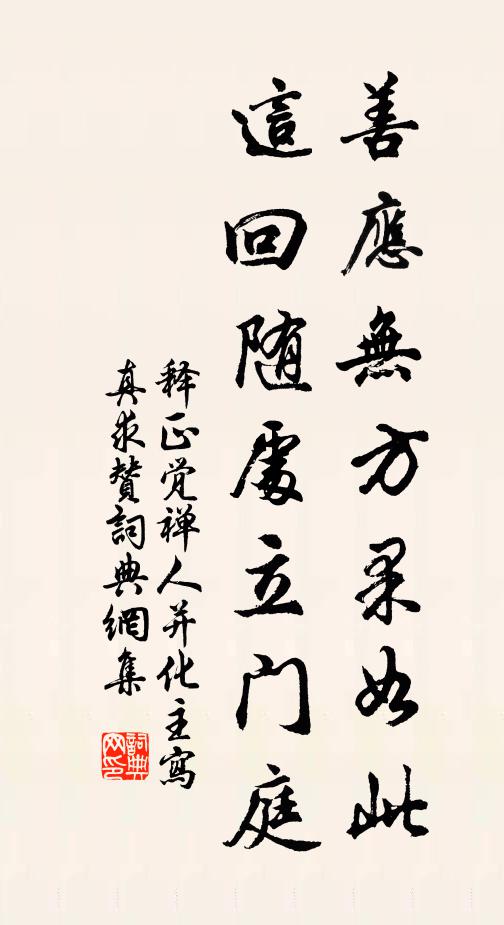 善應無方果如此
這回随處立門庭
释正觉禅人并化主寫
真求贊詞典網集
詞典
网印